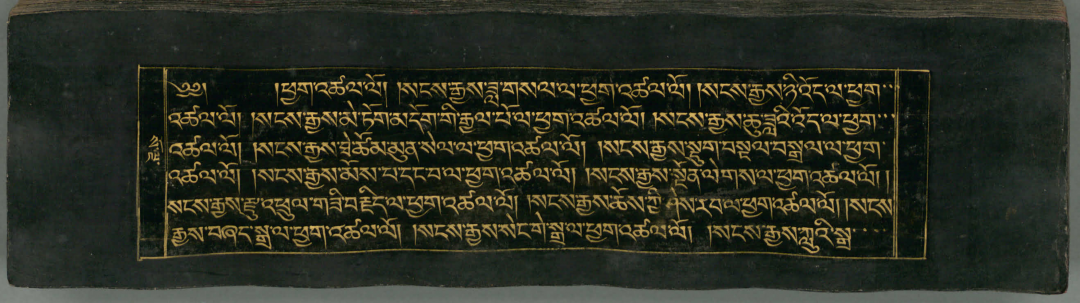 ༄༅། །ཕྱག་འཚལ་ལོ། །སངས་རྒྱས་ཟླ་གསལ་ལ་ཕྱག་འཚལ་ལོ། །སངས་རྒྱས་ཉི་འོད་ལ་ཕྱག་
འཚལ་ལོ། །སངས་རྒྱས་མེ་ཏོག་མདོག་གི་རྒྱལ་པོ་ལ་ཕྱག་འཚལ་ལོ། །སངས་རྒྱས་ཆུ་ཟླའི་འོད་ལ་ཕྱག་
འཚལ་ལོ། །སངས་རྒྱས་ཐེ་ཚོམ་མུན་སེལ་ལ་ཕྱག་འཚལ་ལོ། །སངས་རྒྱས་སྡུག་བསྔལ་བསྒྲལ་ལ་ཕྱག་
འཚལ་ལོ། །སངས་རྒྱས་མོས་པ་དང་བ་ལ་ཕྱག་འཚལ་ལོ། །སངས་རྒྱས་སྤྱོན་ལེགས་ལ་ཕྱག་འཚལ་ལོ། །
སངས་རྒྱས་རྫུ་འཕྲུལ་གཟི་བརྗིད་ལ་ཕྱག་འཚལ་ལོ། །སངས་རྒྱས་ཆོས་ཀྱི་ཤེས་རབ་ལ་ཕྱག་འཚལ་ལོ། །སངས་
རྒྱས་བཞད་སྒྲ་ལ་ཕྱག་འཚལ་ལོ། །སངས་རྒྱས་སེང་གེ་སྒྲ་ལ་ཕྱག་འཚལ་ལོ། །སངས་རྒྱས་ཀླུའི་སྒྲ་